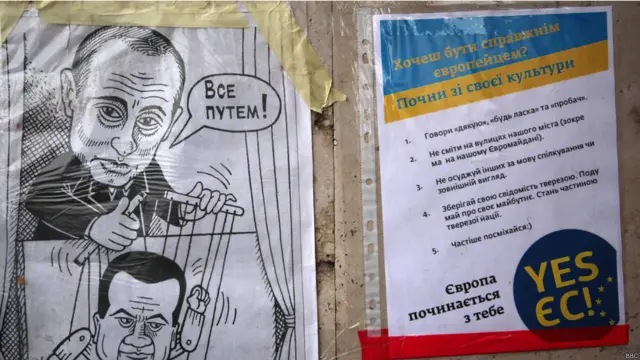 Все
путем!
Хочеш бути справжнім
європейцем?
Почни зі своєї культури
1. Говори «дякую», «будь ласка» та «пробач».
2. Не сміти на вулицях нашого міста (зокре
ма на нашому Євромайдані).
3. Не осуджуй інших за мову спілкування чи
зовнішній вигляд.
4. Зберігай свою свідомість тверезою. Поду
май про своє майбутнє. Стань частиною
тверезої нації.
5. Частіше посміхайся:)
Європа
починається
з тебе
YES
ЄС!
BBC